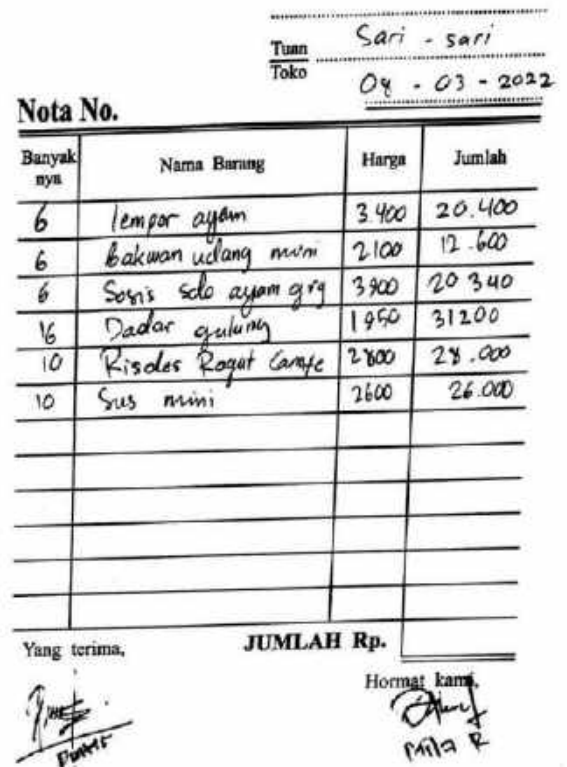 Tuan
Toko
Sari - sari
04 - 03 - 2022
Nota No.
Banyak nya Nama Barang Harga Jumlah
6 lemper ayam 3.400 20.400
6 bakwan udang mini 2100 12.600
6 Sosis solo ayam grg 3900 20 340
16 Dadar gulung 1950 31200
10 Risoles Rogut 2800 28.000
10 Sus mini 2600 26.000
Yang terima,
JUMLAH Rp.
Hormat kami,
Mila R